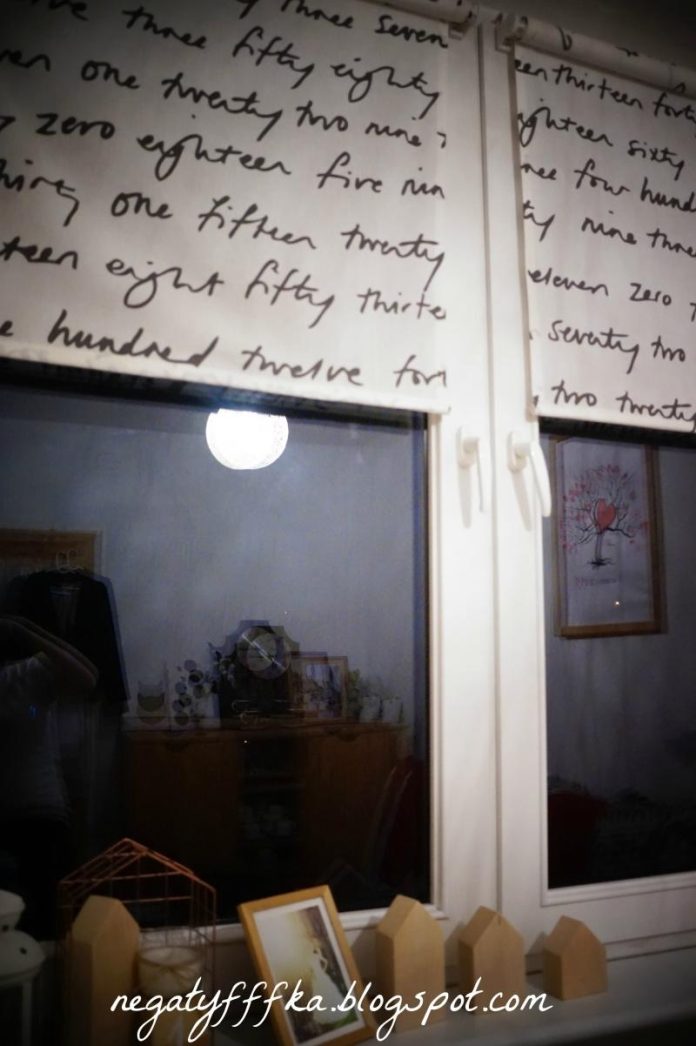 three seven
three fifty eighty
one twenty two nine
zero eighteen five nin
one fifteen twenty
teen eight fifty thirte
e hundred twelve fort
een thirteen forty
ighteen sixty
four hund
ty nine three
eleven zero
seventy two
two twenty
negatyfffka.blogspot.com